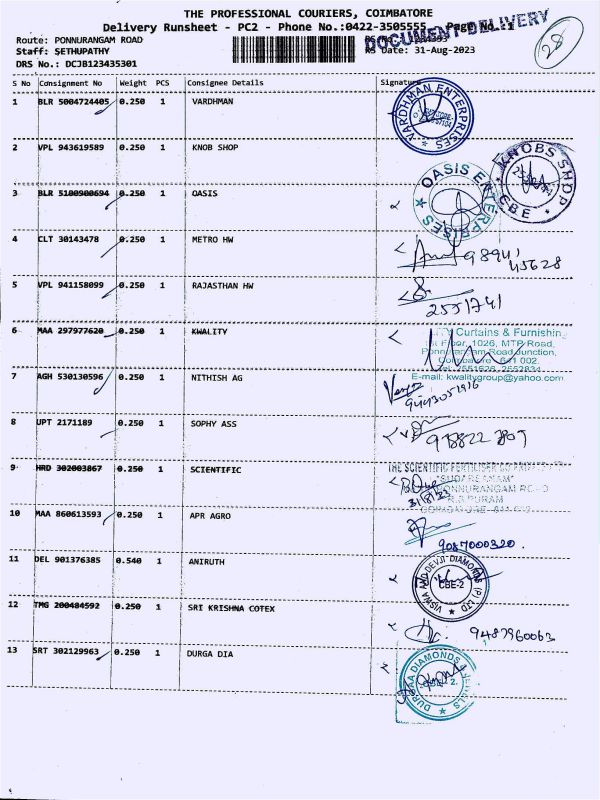 THE PROFESSIONAL COURIERS, COIMBATORE
Delivery Runsheet - PC2 - Phone No.:0422-3505555 Page No.:1
DOCUMENT DELIVERY
28
Route: PONNURANGAM ROAD
Staff: SETHUPATHY
RS Date: 31-Aug-2023
DRS No.: DCJB123435301
S No Consignment No Weight PCS Consignee Details Signature
1 BLR 5004724405 0.250 1 VARDHMAN
VARDHMAN ENTERPRISES
2 VPL 943619589 0.250 1 KNOB SHOP
KNOBS SHOP CBE
3 BLR 5100900694 0.250 1 OASIS
OASIS ENTERPRISES
4 CLT 30143478 0.250 1 METRO HW
98941
45628
5 VPL 941158099 0.250 1 RAJASTHAN HW
2551741
6 MAA 297977620 0.250 1 KWALITY
Curtains & Furnishing
Floor, 1026, MTP Road,
Ponnurangam Road Junction,
Coimbatore - 641 002.
Tel: 2551626, 2552834
E-mail: kwalitygroup@yahoo.com
7 AGH 530130596 0.250 1 NITHISH AG
8 UPT 2171189 0.250 1 SOPHY ASS
9 HRD 302003867 0.250 1 SCIENTIFIC
THE SCIENTIFIC FERTILISER CO PRIVATE
PONNURANGAM ROAD
R.S PURAM
31/8/23
10 MAA 860613593 0.250 1 APR AGRO
9087000320
11 DEL 901376385 0.540 1 ANIRUTH
VISWA AND DEVJI DIAMONDS (P) LTD
CBE-2
12 TMG 200484592 0.250 1 SRI KRISHNA COTEX
9487960063
13 SRT 302129963 0.250 1 DURGA DIA
DURGAA DIAMONDS